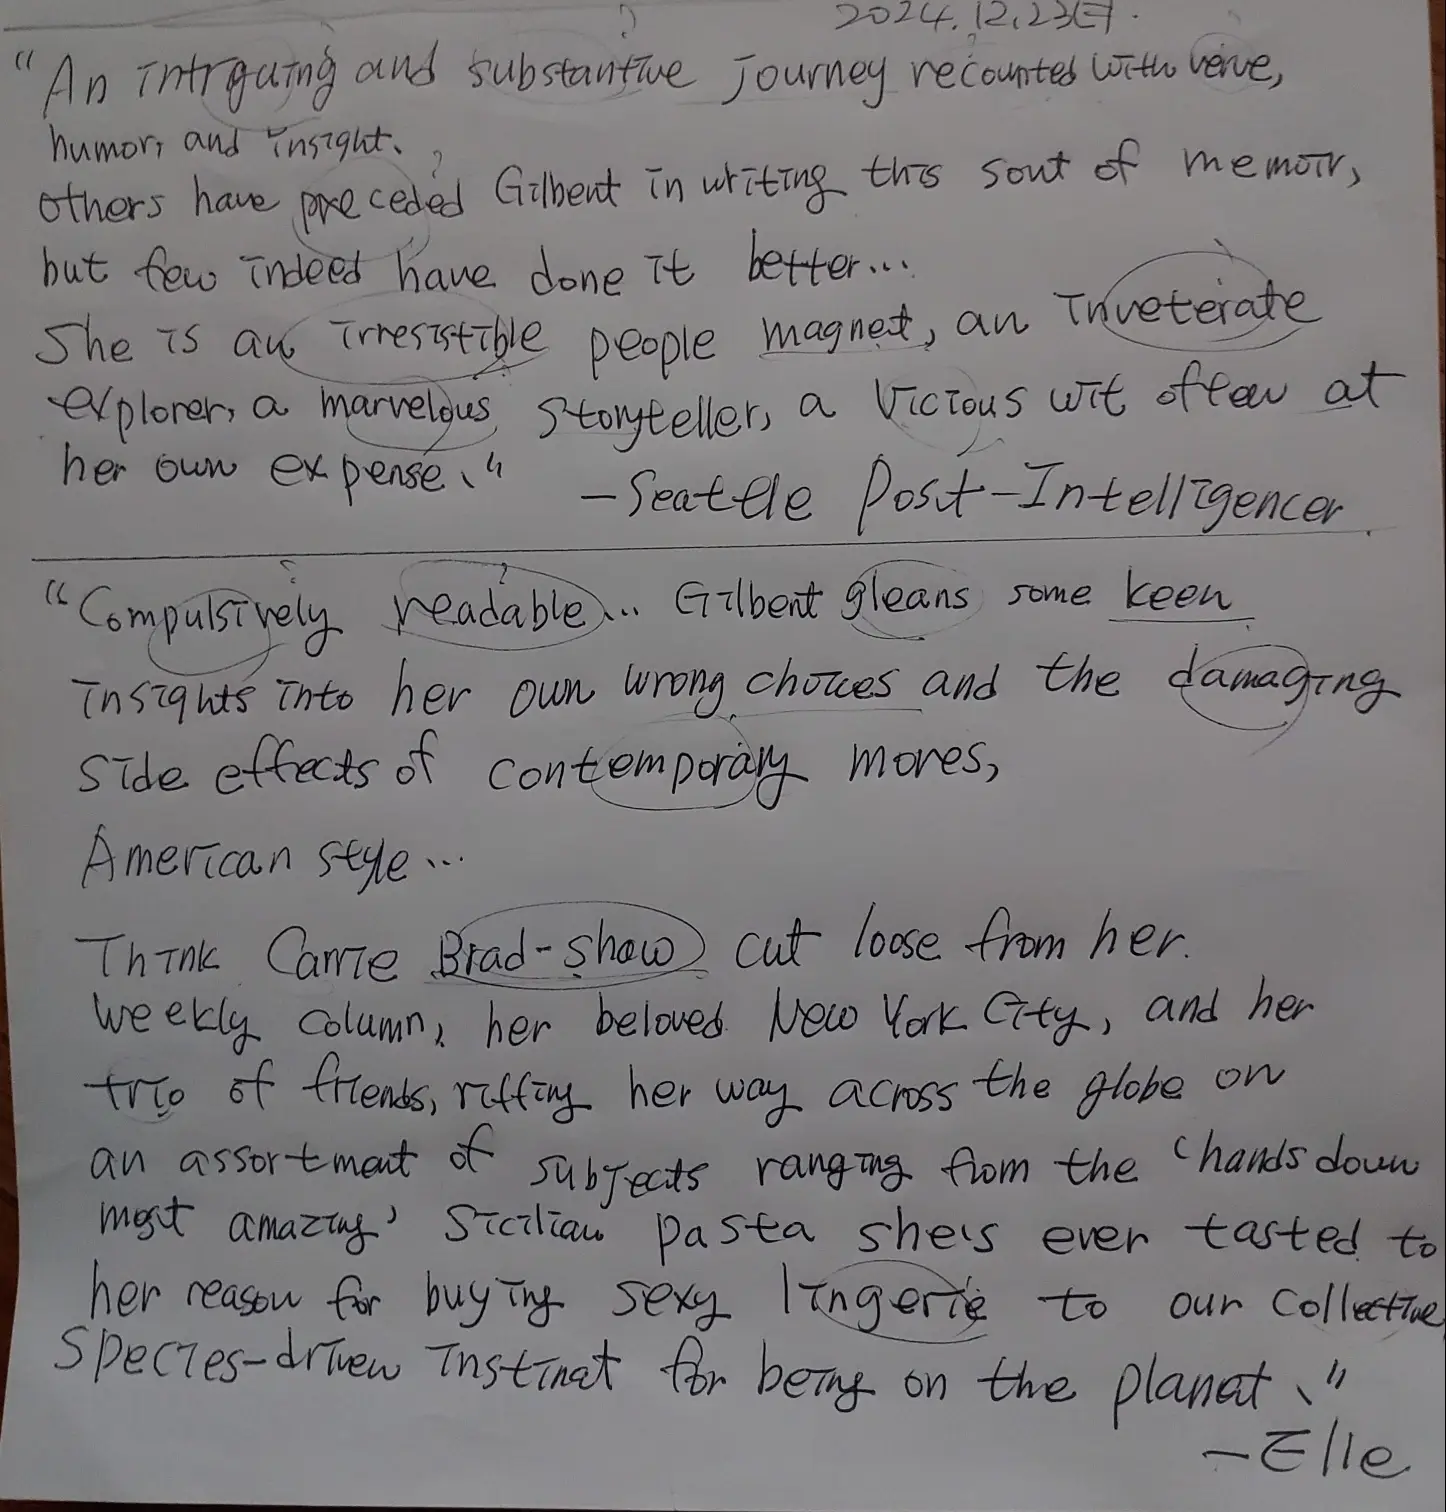 2024.12.23日.
"An intriguing and substantive journey recounted with verve,
humor, and insight.
others have preceded Gilbert in writing this sort of memoir,
but few indeed have done it better...
She is an irresistible people magnet, an inveterate
explorer, a marvelous storyteller, a vicious wit often at
her own expense."
-Seattle Post-Intelligencer
"Compulsively readable... Gilbert gleans some keen
insights into her own wrong choices and the damaging
side effects of contemporary mores,
American style...
Think Carrie Brad-show cut loose from her.
weekly column, her beloved New York City, and her
trio of friends, riffing her way across the globe on
an assortment of subjects ranging from the 'hands down
most amazing' Sicilian pasta she's ever tasted to
her reason for buying sexy lingerie to our collective
species-driven instinct for being on the planet."
-Elle